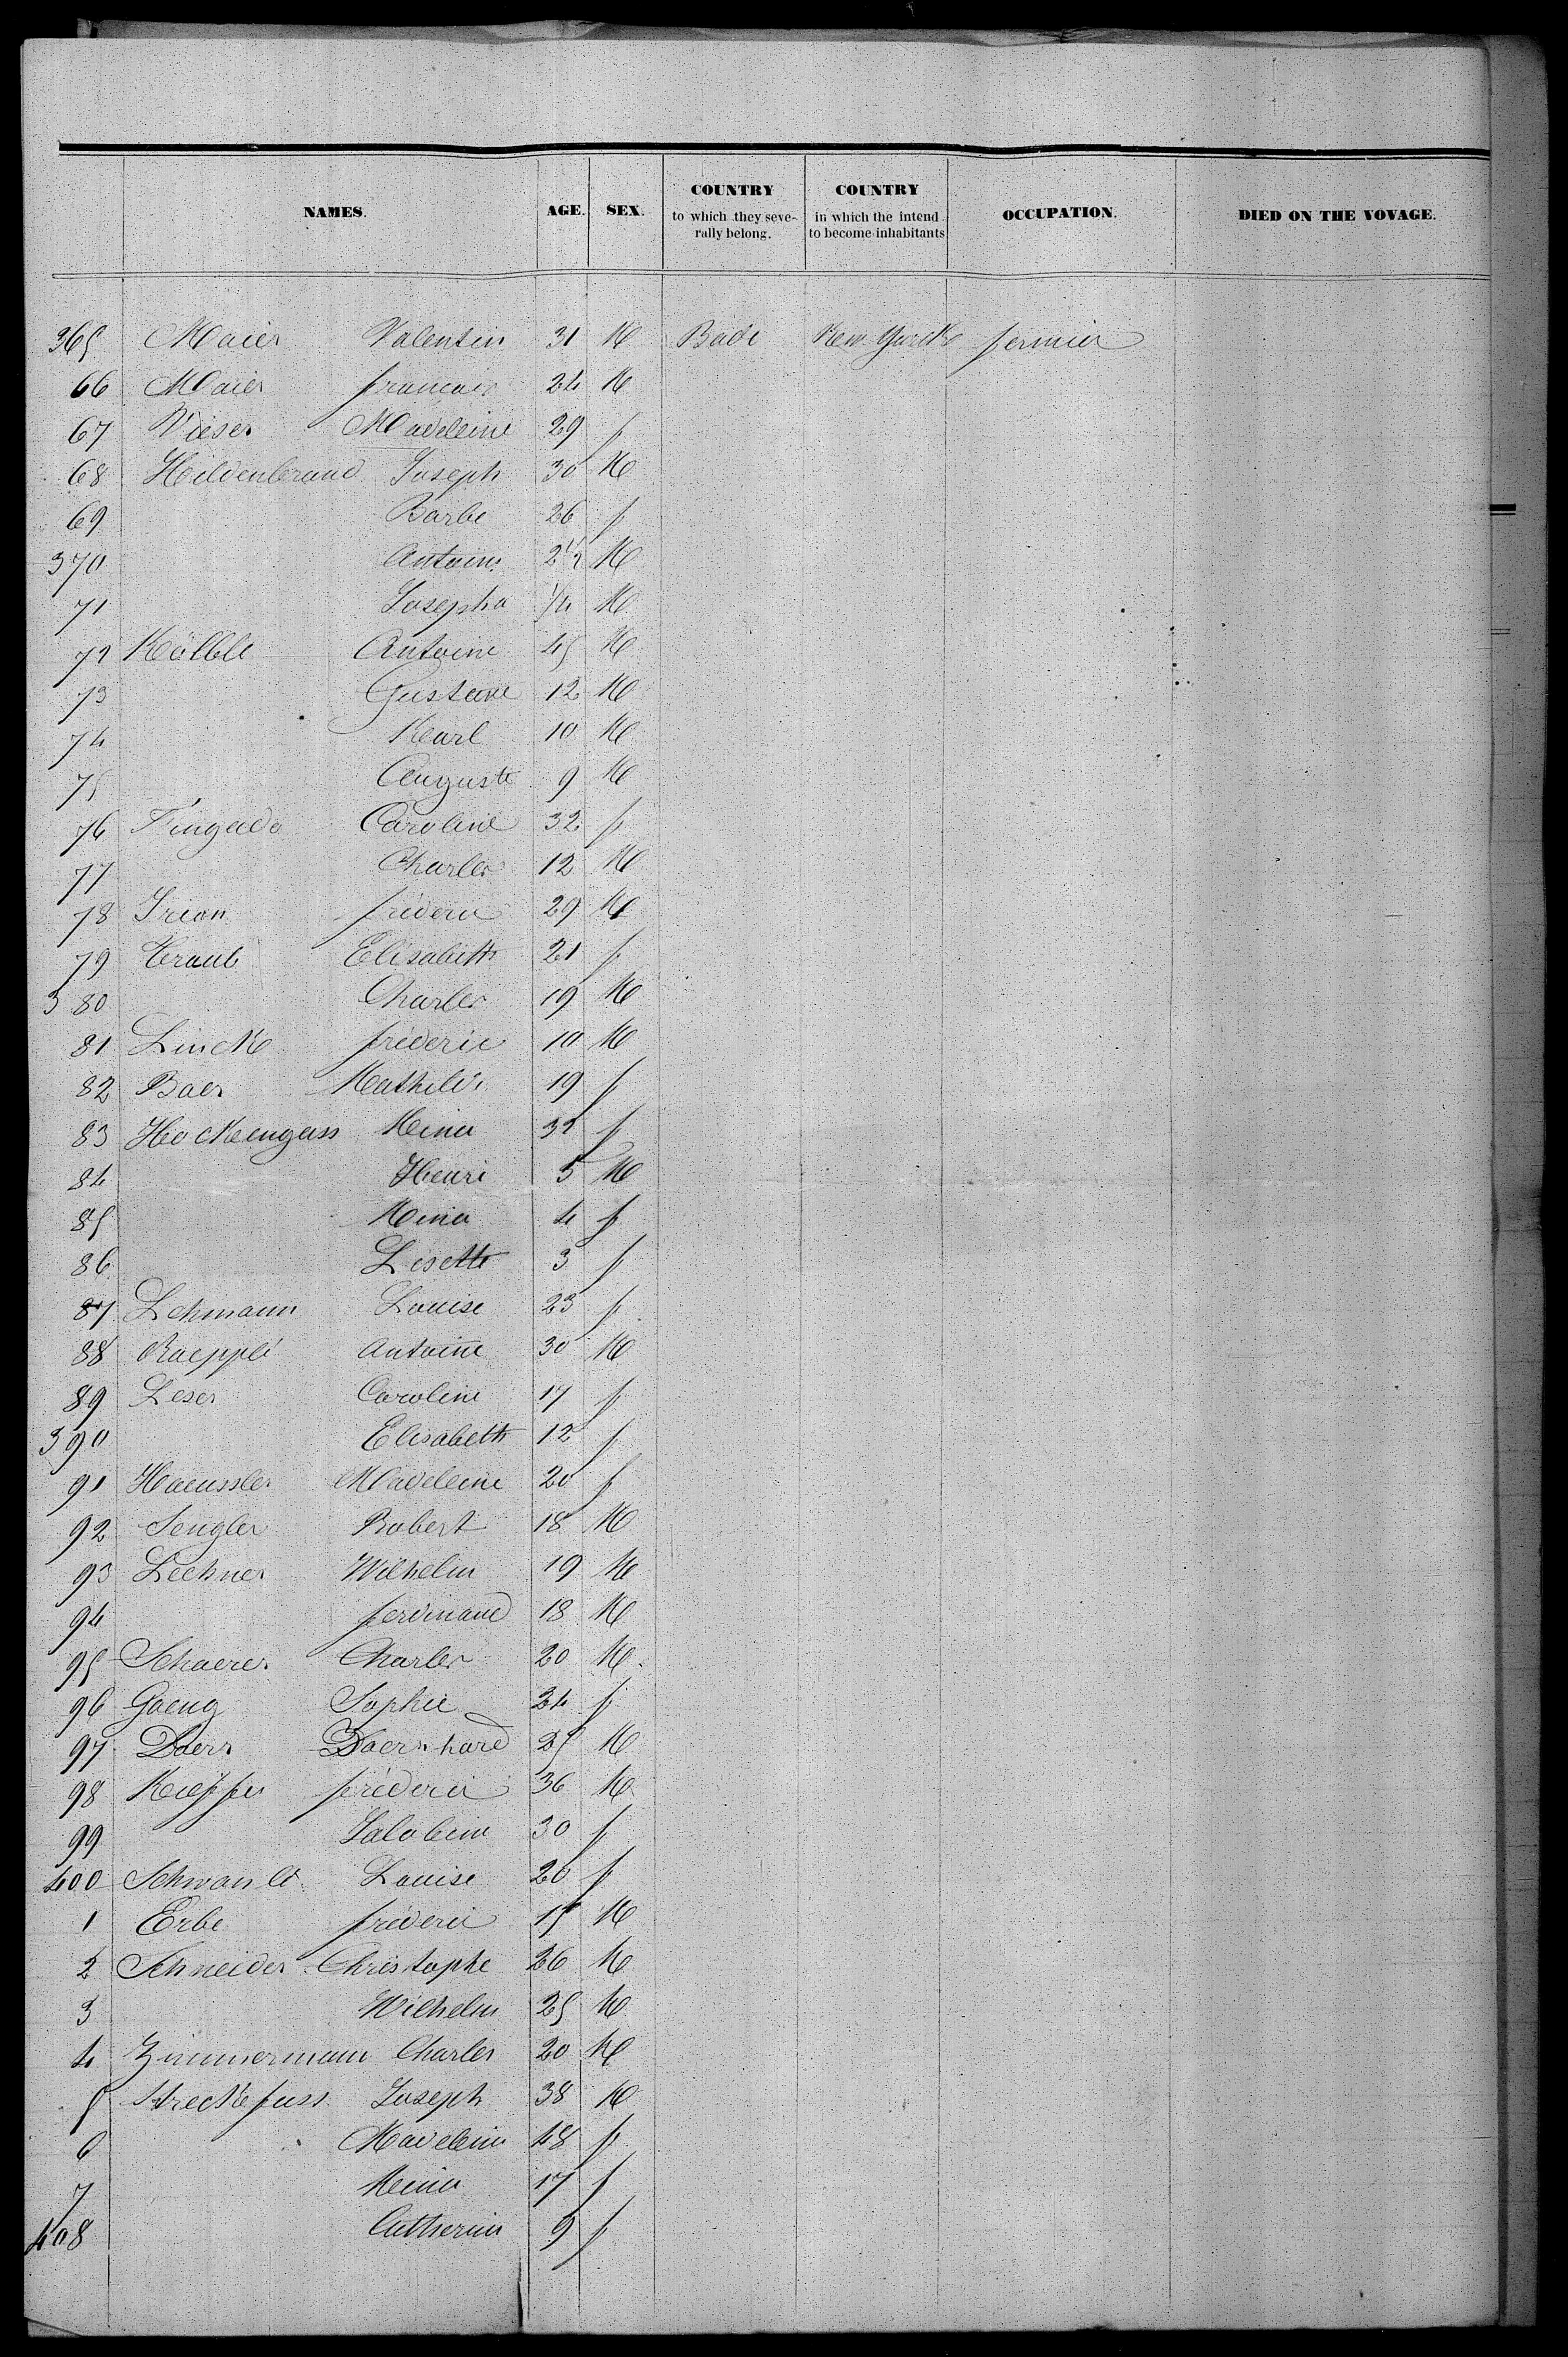 NAMES. AGE. SEX. COUNTRY to which they seve- rally belong. COUNTRY in which the intend to become inhabitants OCCUPATION. DIED ON THE VOVAGE.
365 Maier Valentin 31 M Bade New Yorck fermier
66 Maier francois 24 M
67 Wieser Madeleine 29 f
68 Hildenbrand Joseph 30 M
69 Barbe 26 f
370 Antoine 2 1/2 M
71 Josepha 1/4 M
72 Kölble Antoine 45 M
73 Gustave 12 M
74 Karl 10 M
75 Auguste 9 M
76 Fingado Caroline 32 f
77 Charles 12 M
78 Irion frederic 29 M
79 Traub Elisabeth 21 f
380 Charles 19 M
81 Linck frederic 10 M
82 Baer Mathilde 19 f
83 Hockengass Mina 32 f
84 Henri 5 M
85 Mina 4 f
86 Lisette 3 f
87 Lehmann Louise 23 f
88 Raepple Antoine 30 M
89 Leser Caroline 17 f
390 Elisabeth 12 f
91 Haeussler Madeleine 20 f
92 Sengler Robert 18 M
93 Lechner Wilhelm 19 M
94 ferdinand 18 M
95 Schaerer Charles 20 M
96 Gaeng Sophie 24 f
97 Doerr Baernhard 25 M
98 Kieffer frederic 36 M
99 30 f
400 Louise 20 f
1 Erbe frederic 15 M
2 Schneider Christophe 26 M
3 Wilhelm 25 M
4 Zimmermann Charles 20 M
5 Streckefuss Joseph 38 M
6 Madeleine 48 f
7 Mina 17 f
408 Catherine 9 f